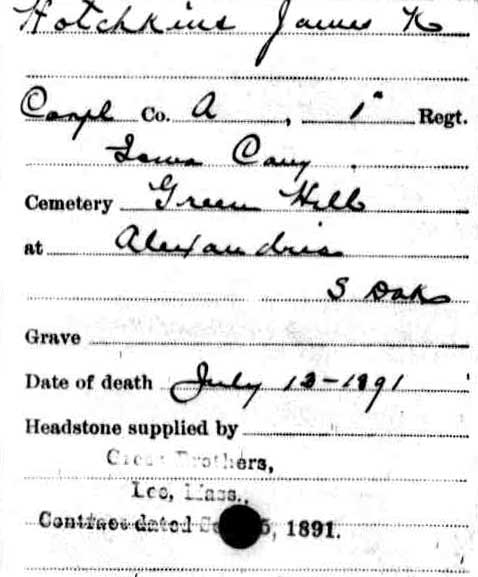 Hotchkins James K
Corpl Co. A , 1" Regt.
Iowa Cavy .
Cemetery Green Hill
at Alexandria
S Dak
Grave
Date of death July 13-1891
Headstone supplied by
Brothers,
Lee, Mass.,
Contract dated 5, 1891.